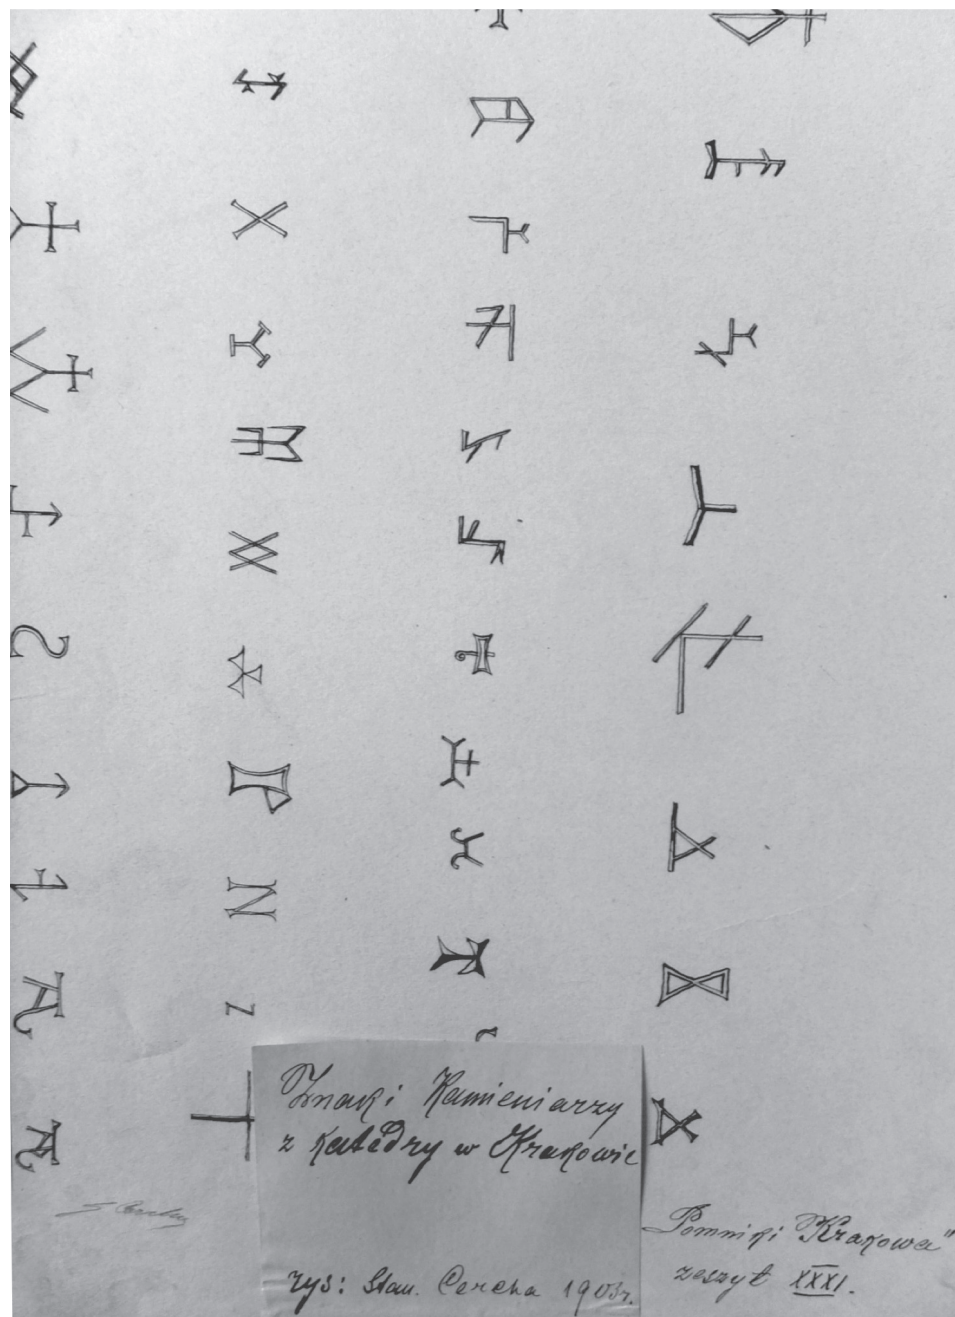 Znaki Kamieniarzy
z katedry w Krakowie
rys: Stan. Cercha 1903r.
S Cercha
"Pomniki Krakowa"
zeszyt XXXI.